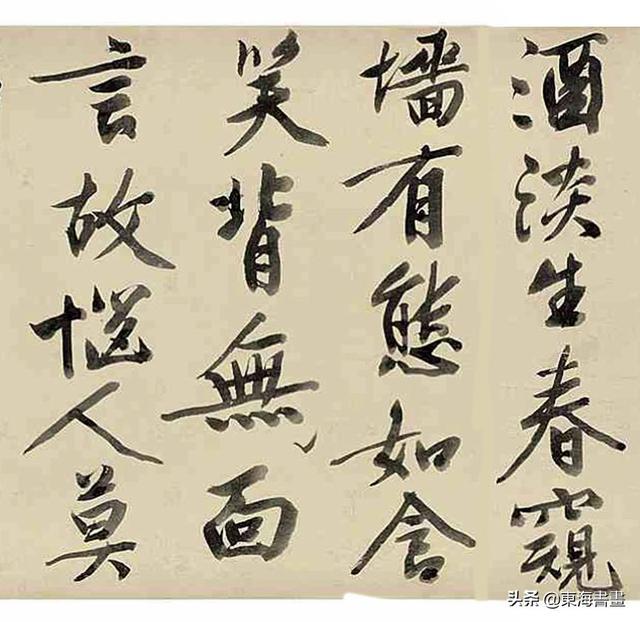 酒淡生春窺
墻有態如含
笑背無面
言故惱人莫
头条 @東海書畫